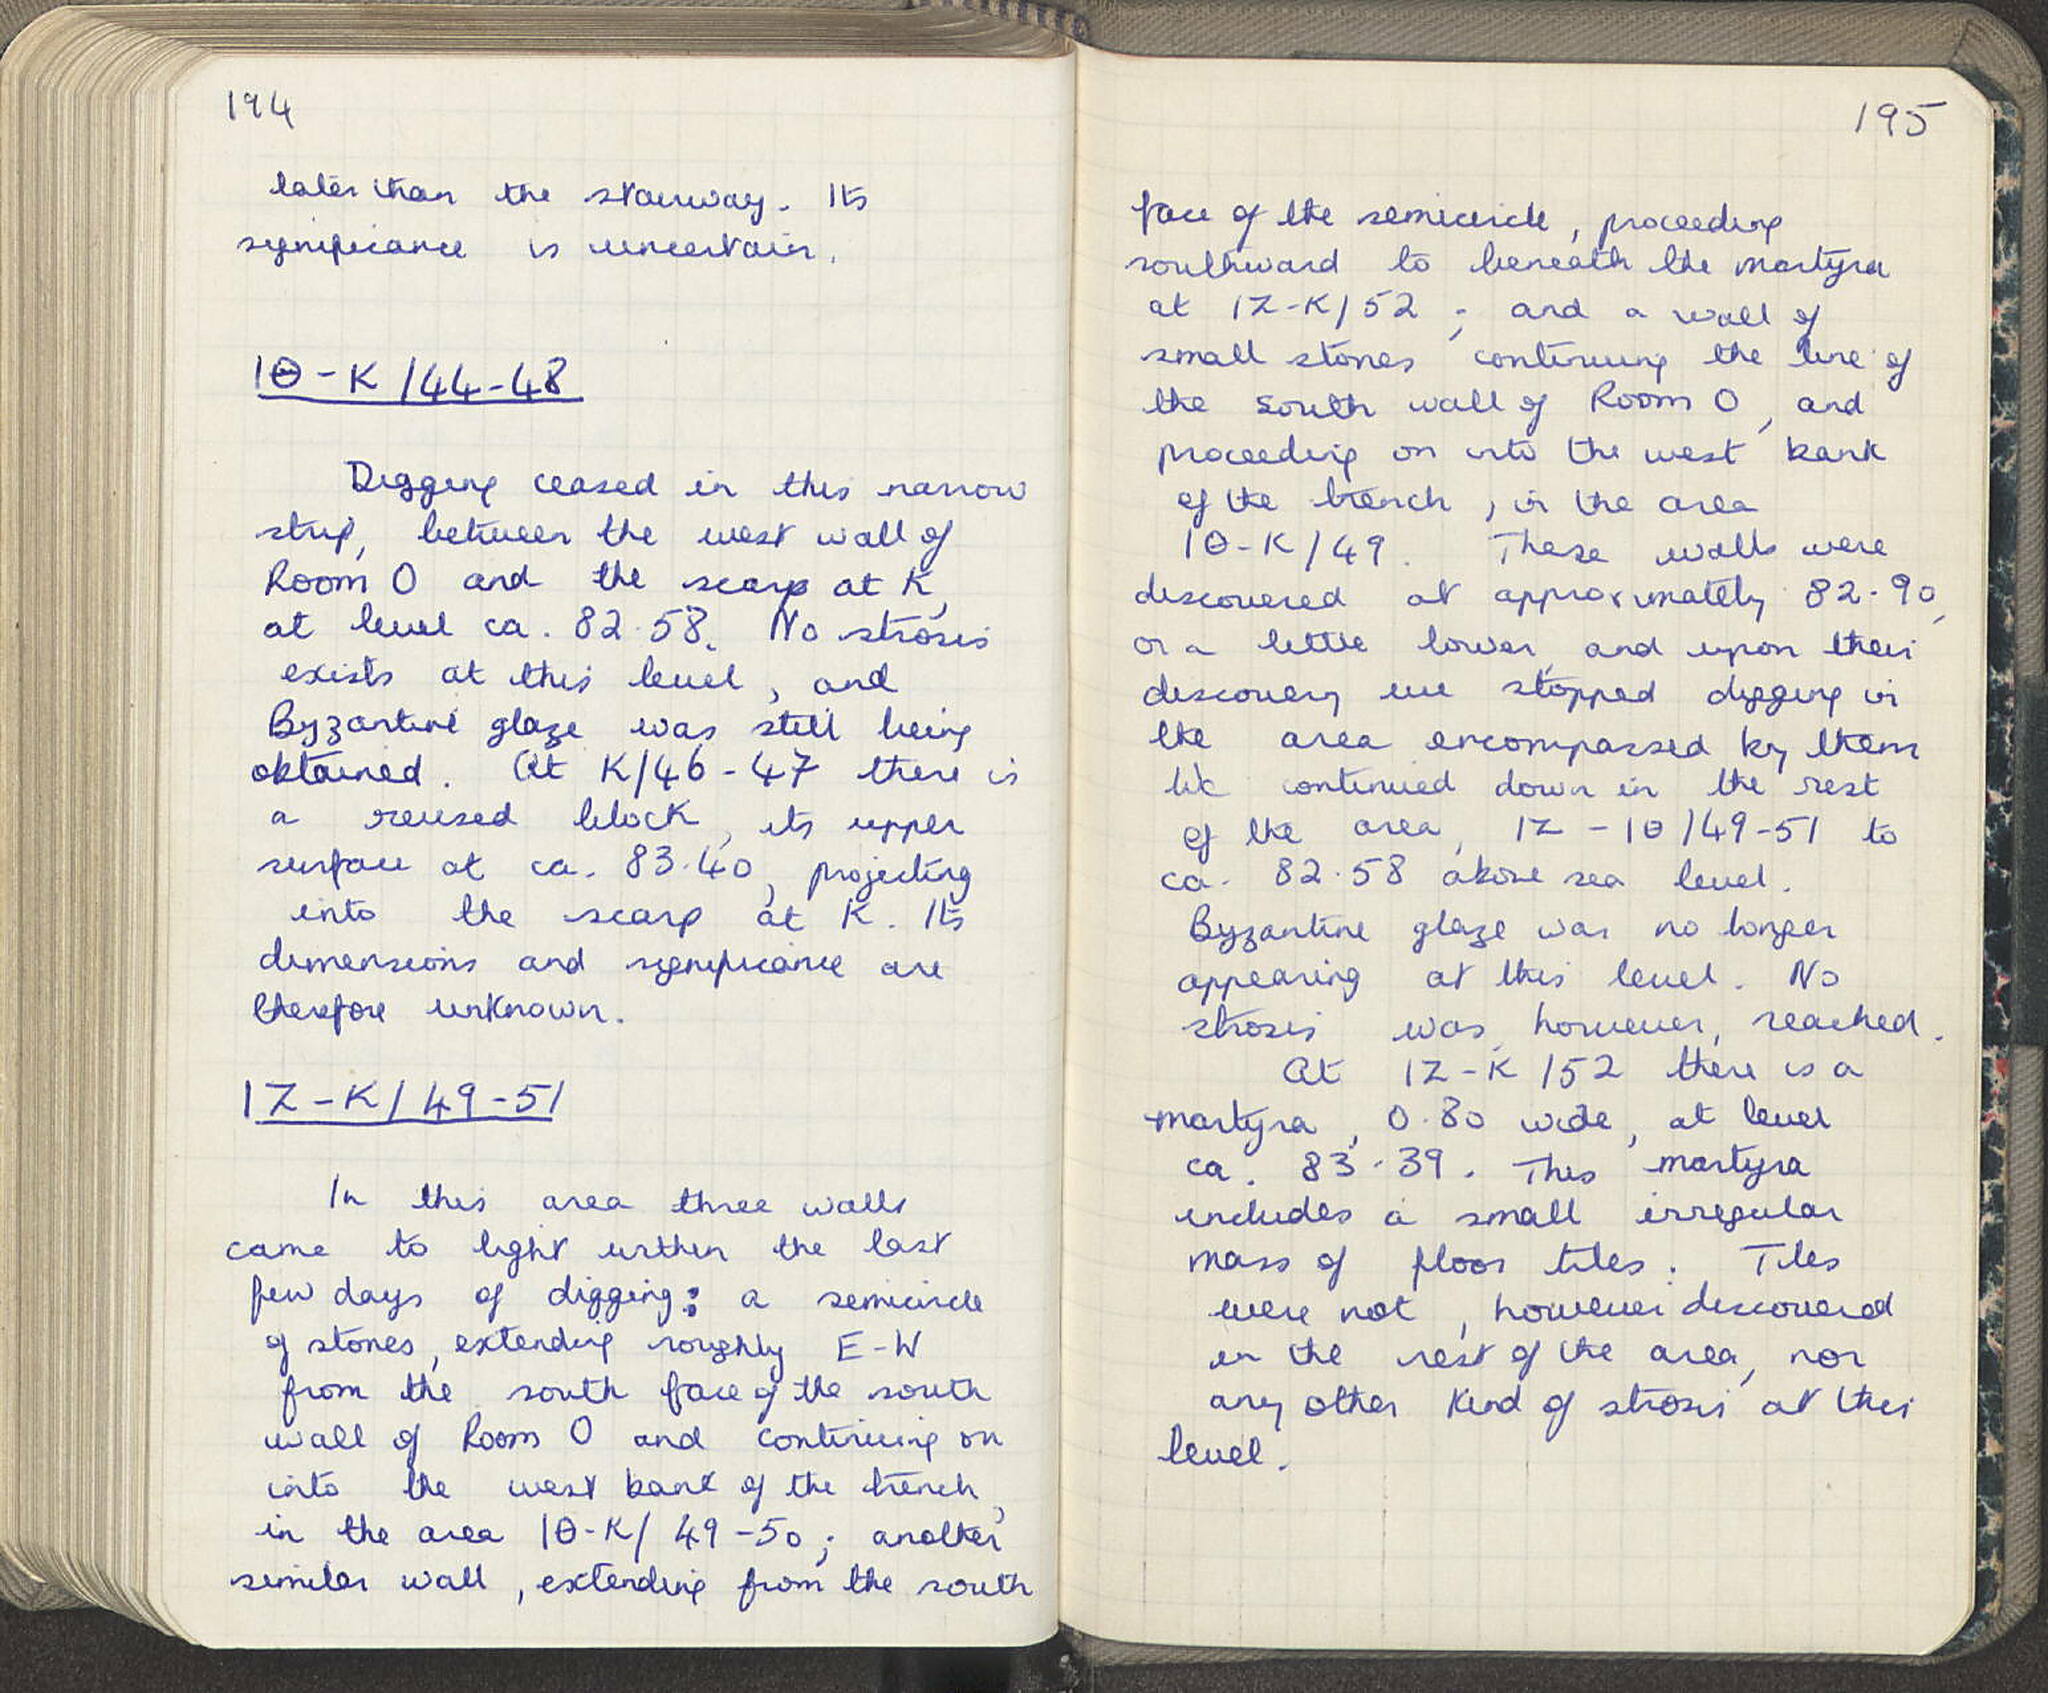 194
later than the stairway. Its
significance is uncertain.
1Θ-K/44-48
Digging ceased in this narrow
strip, between the west wall of
Room O and the scarp at K,
at level ca. 82.58. No strosis
exists at this level, and
Byzantine glaze was still being
obtained. At K/46-47 there is
a reused block, its upper
surface at ca. 83.40, projecting
into the scarp at K. Its
dimensions and significance are
therefore unknown.
1Z-K/49-51
In this area three walls
came to light within the last
few days of digging: a semicircle
of stones, extending roughly E-W
from the south face of the south
wall of Room O and continuing on
into the west bank of the trench,
in the area 1Θ-K/49-50; another
similar wall, extending from the south
195
face of the semicircle, proceeding
southward to beneath the martyra
at 1Z-K/52; and a wall of
small stones continuing the line of
the south wall of Room O, and
proceeding on into the west bank
of the trench, in the area
1Θ-K/49. These walls were
discovered at approximately 82.90,
or a little lower, and upon their
discovery we stopped digging in
the area encompassed by them
We continued down in the rest
of the area, 1Z-1Θ/49-51 to
ca. 82.58 above sea level.
Byzantine glaze was no longer
appearing at this level. No
strosis was, however, reached.
At 1Z-K/52 there is a
martyra, 0.80 wide, at level
ca. 83.39. This martyra
includes a small irregular
mass of floor tiles. Tiles
were not, however discovered
in the rest of the area, nor
any other kind of strosis at this
level.